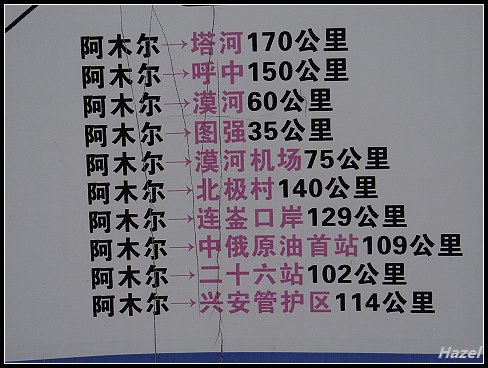 阿木尔→塔河170公里
阿木尔→呼中150公里
阿木尔→漠河60公里
阿木尔→图强35公里
阿木尔→漠河机场75公里
阿木尔→北极村140公里
阿木尔→连崟口岸129公里
阿木尔→中俄原油首站109公里
阿木尔→二十六站102公里
阿木尔→兴安管护区114公里
Hazel